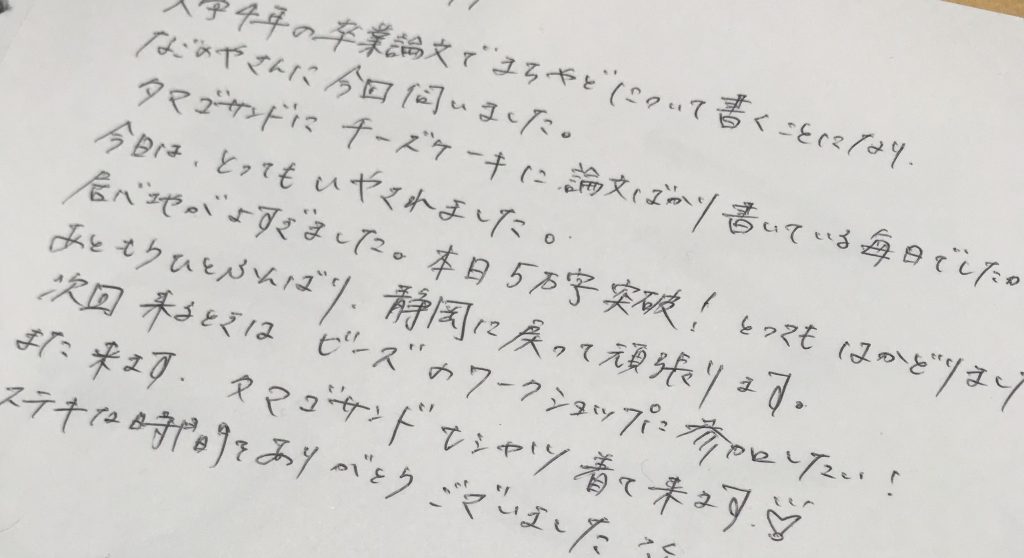 大学4年の卒業論文でまちやどについて書くことになり、
なごのやさんに今回伺いました。
タマゴサンドにチーズケーキに論文ばかり書いている毎日でしたが
今日は、とってもいやされました。
居心地がよすぎました。本日5万字突破！とってもはかどりました
あともうひとふんばり、静岡に戻って頑張ります。
次回来るときはビーズのワークショップに参加したい！
また来ます。タマゴサンドTシャツ着て来ます♡
ステキな時間をありがとうございました